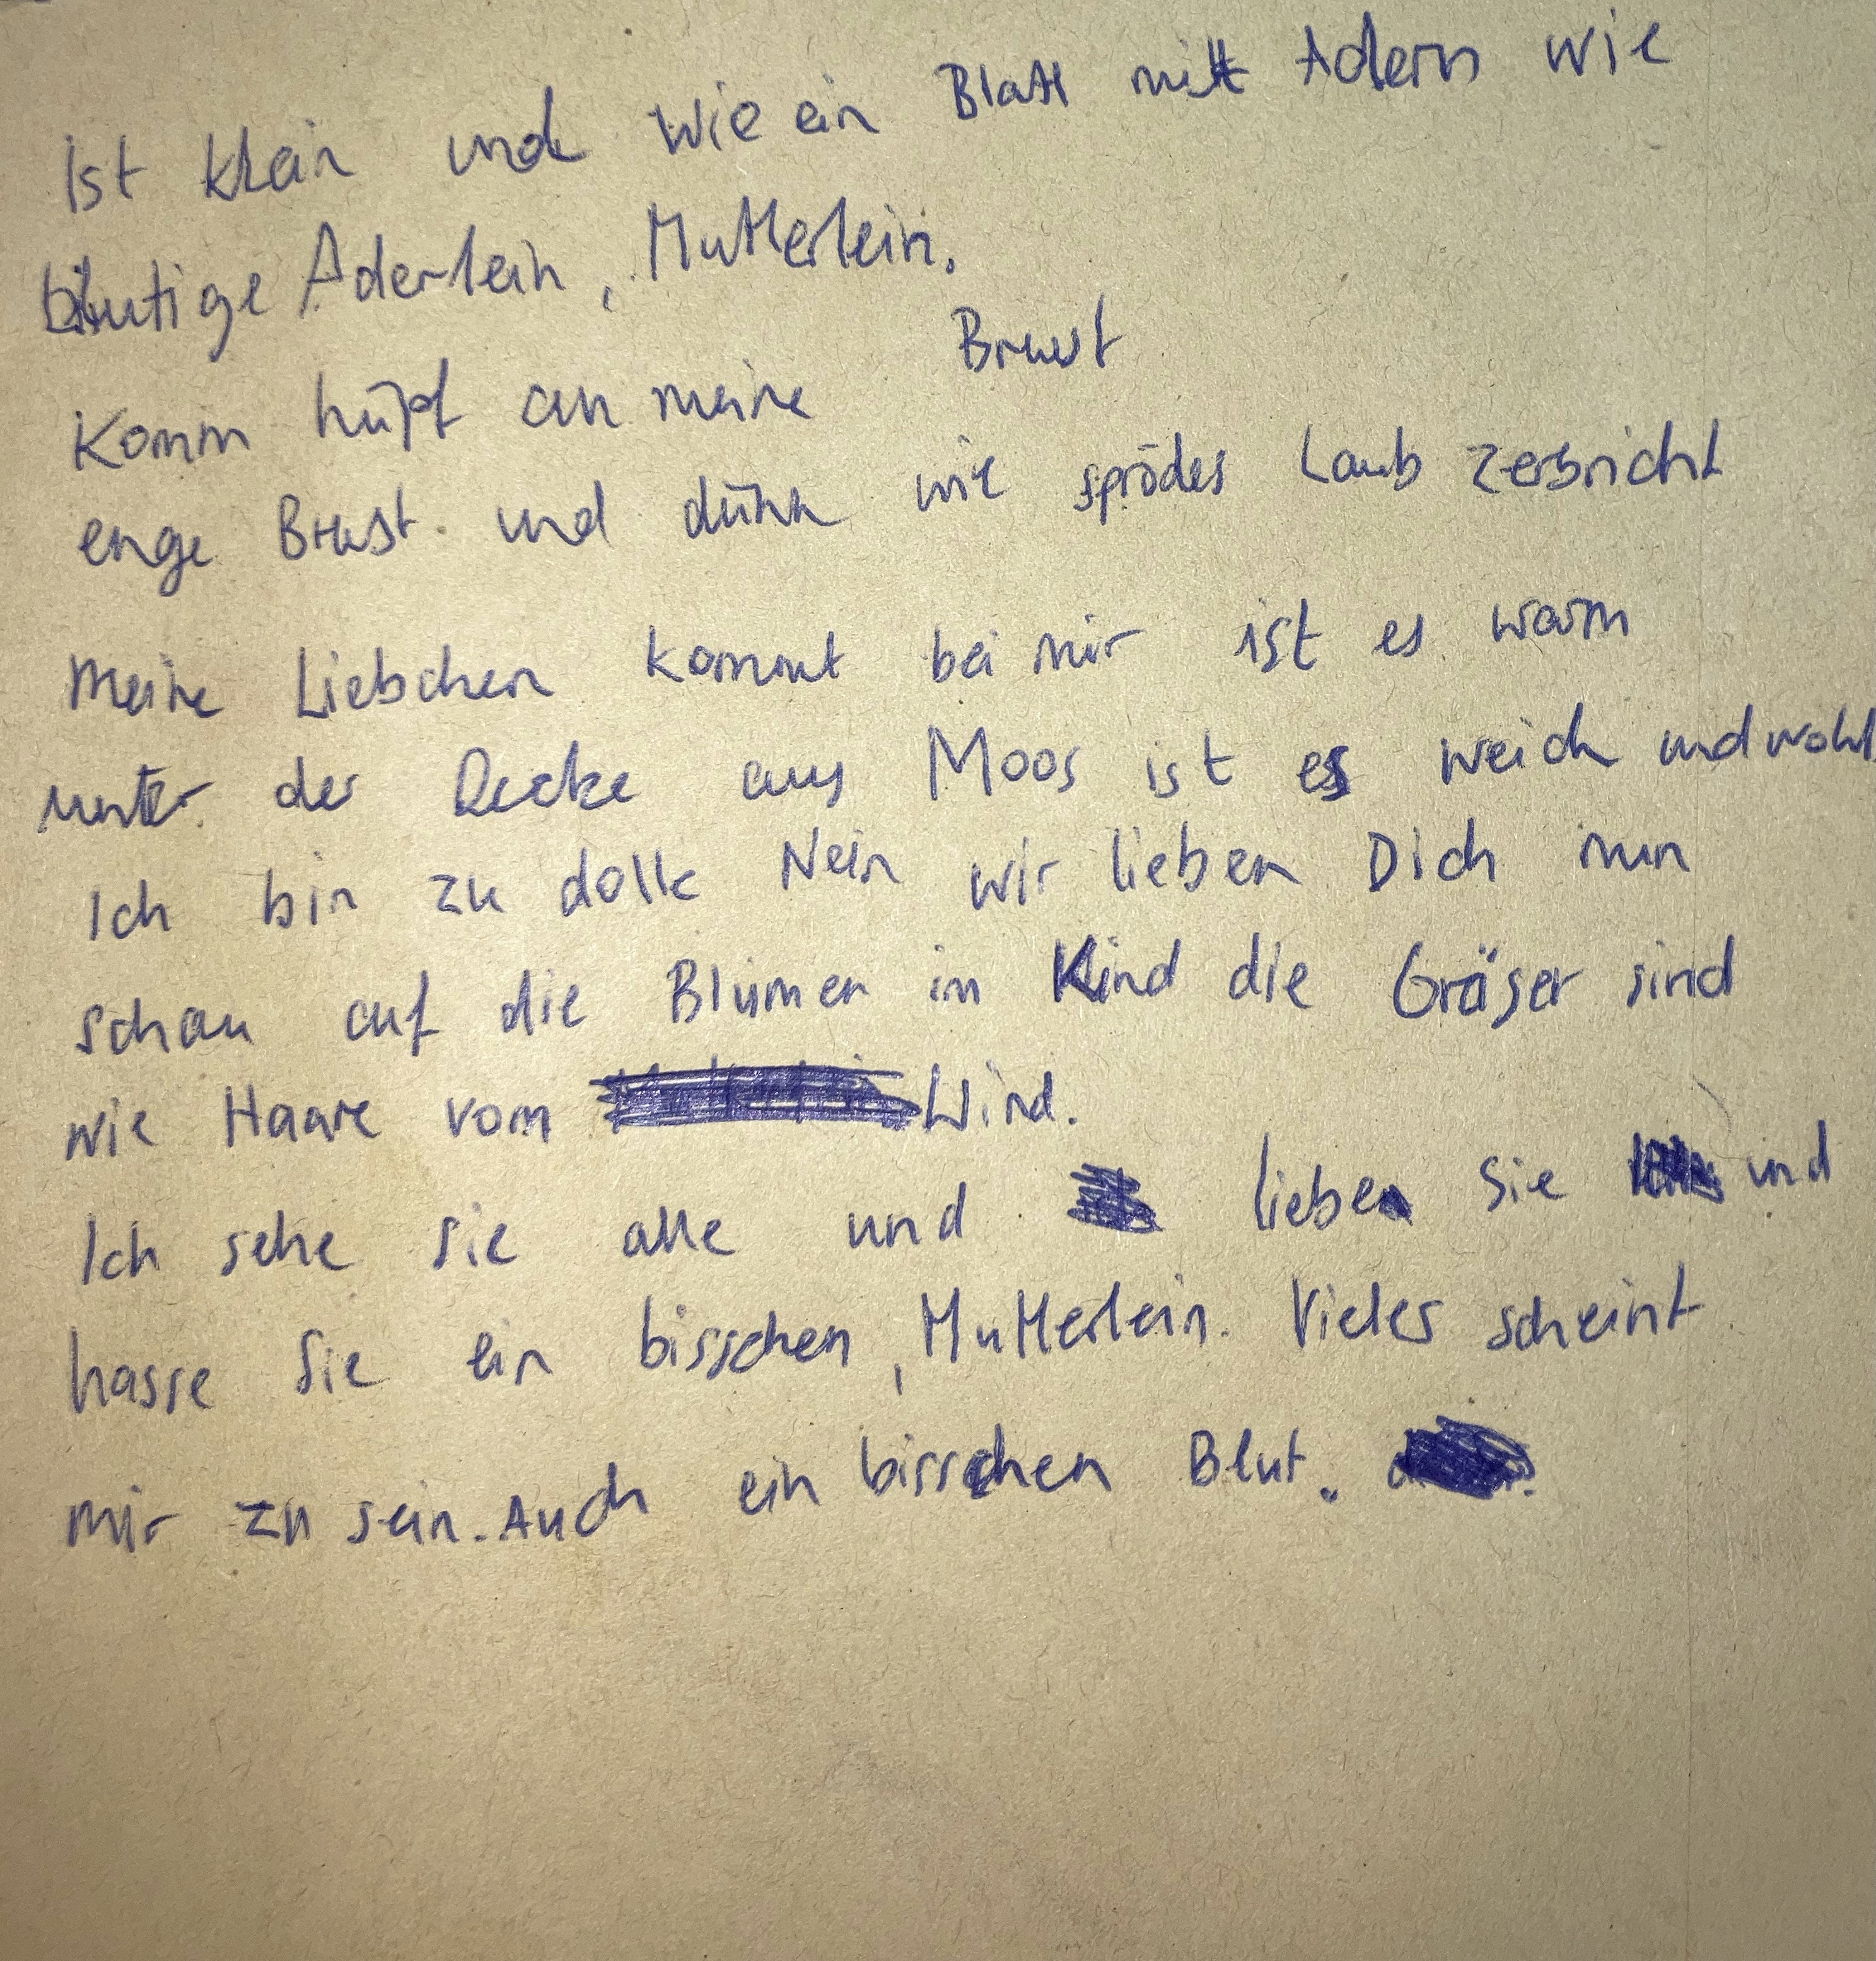 Ist klein und wie ein Blatt mit Adern wie
blutige Äderlein, Mutterlein.
Komm hüpf an meine Brust
enge Brust und dünn wie sprödes Laub zerbricht
meine Liebchen kommt bei mir ist es warm
unter der Decke aus Moos ist es weich und wohl
Ich bin zu doll Nein wir lieben Dich nun
schau auf die Blumen im Kind die Gräser sind
wie Haare vom Wind.
Ich sehe sie alle und liebe sie und
hasse sie ein bisschen, Mutterlein. Vieles scheint
mir zu sein. Auch ein bisschen Blut.